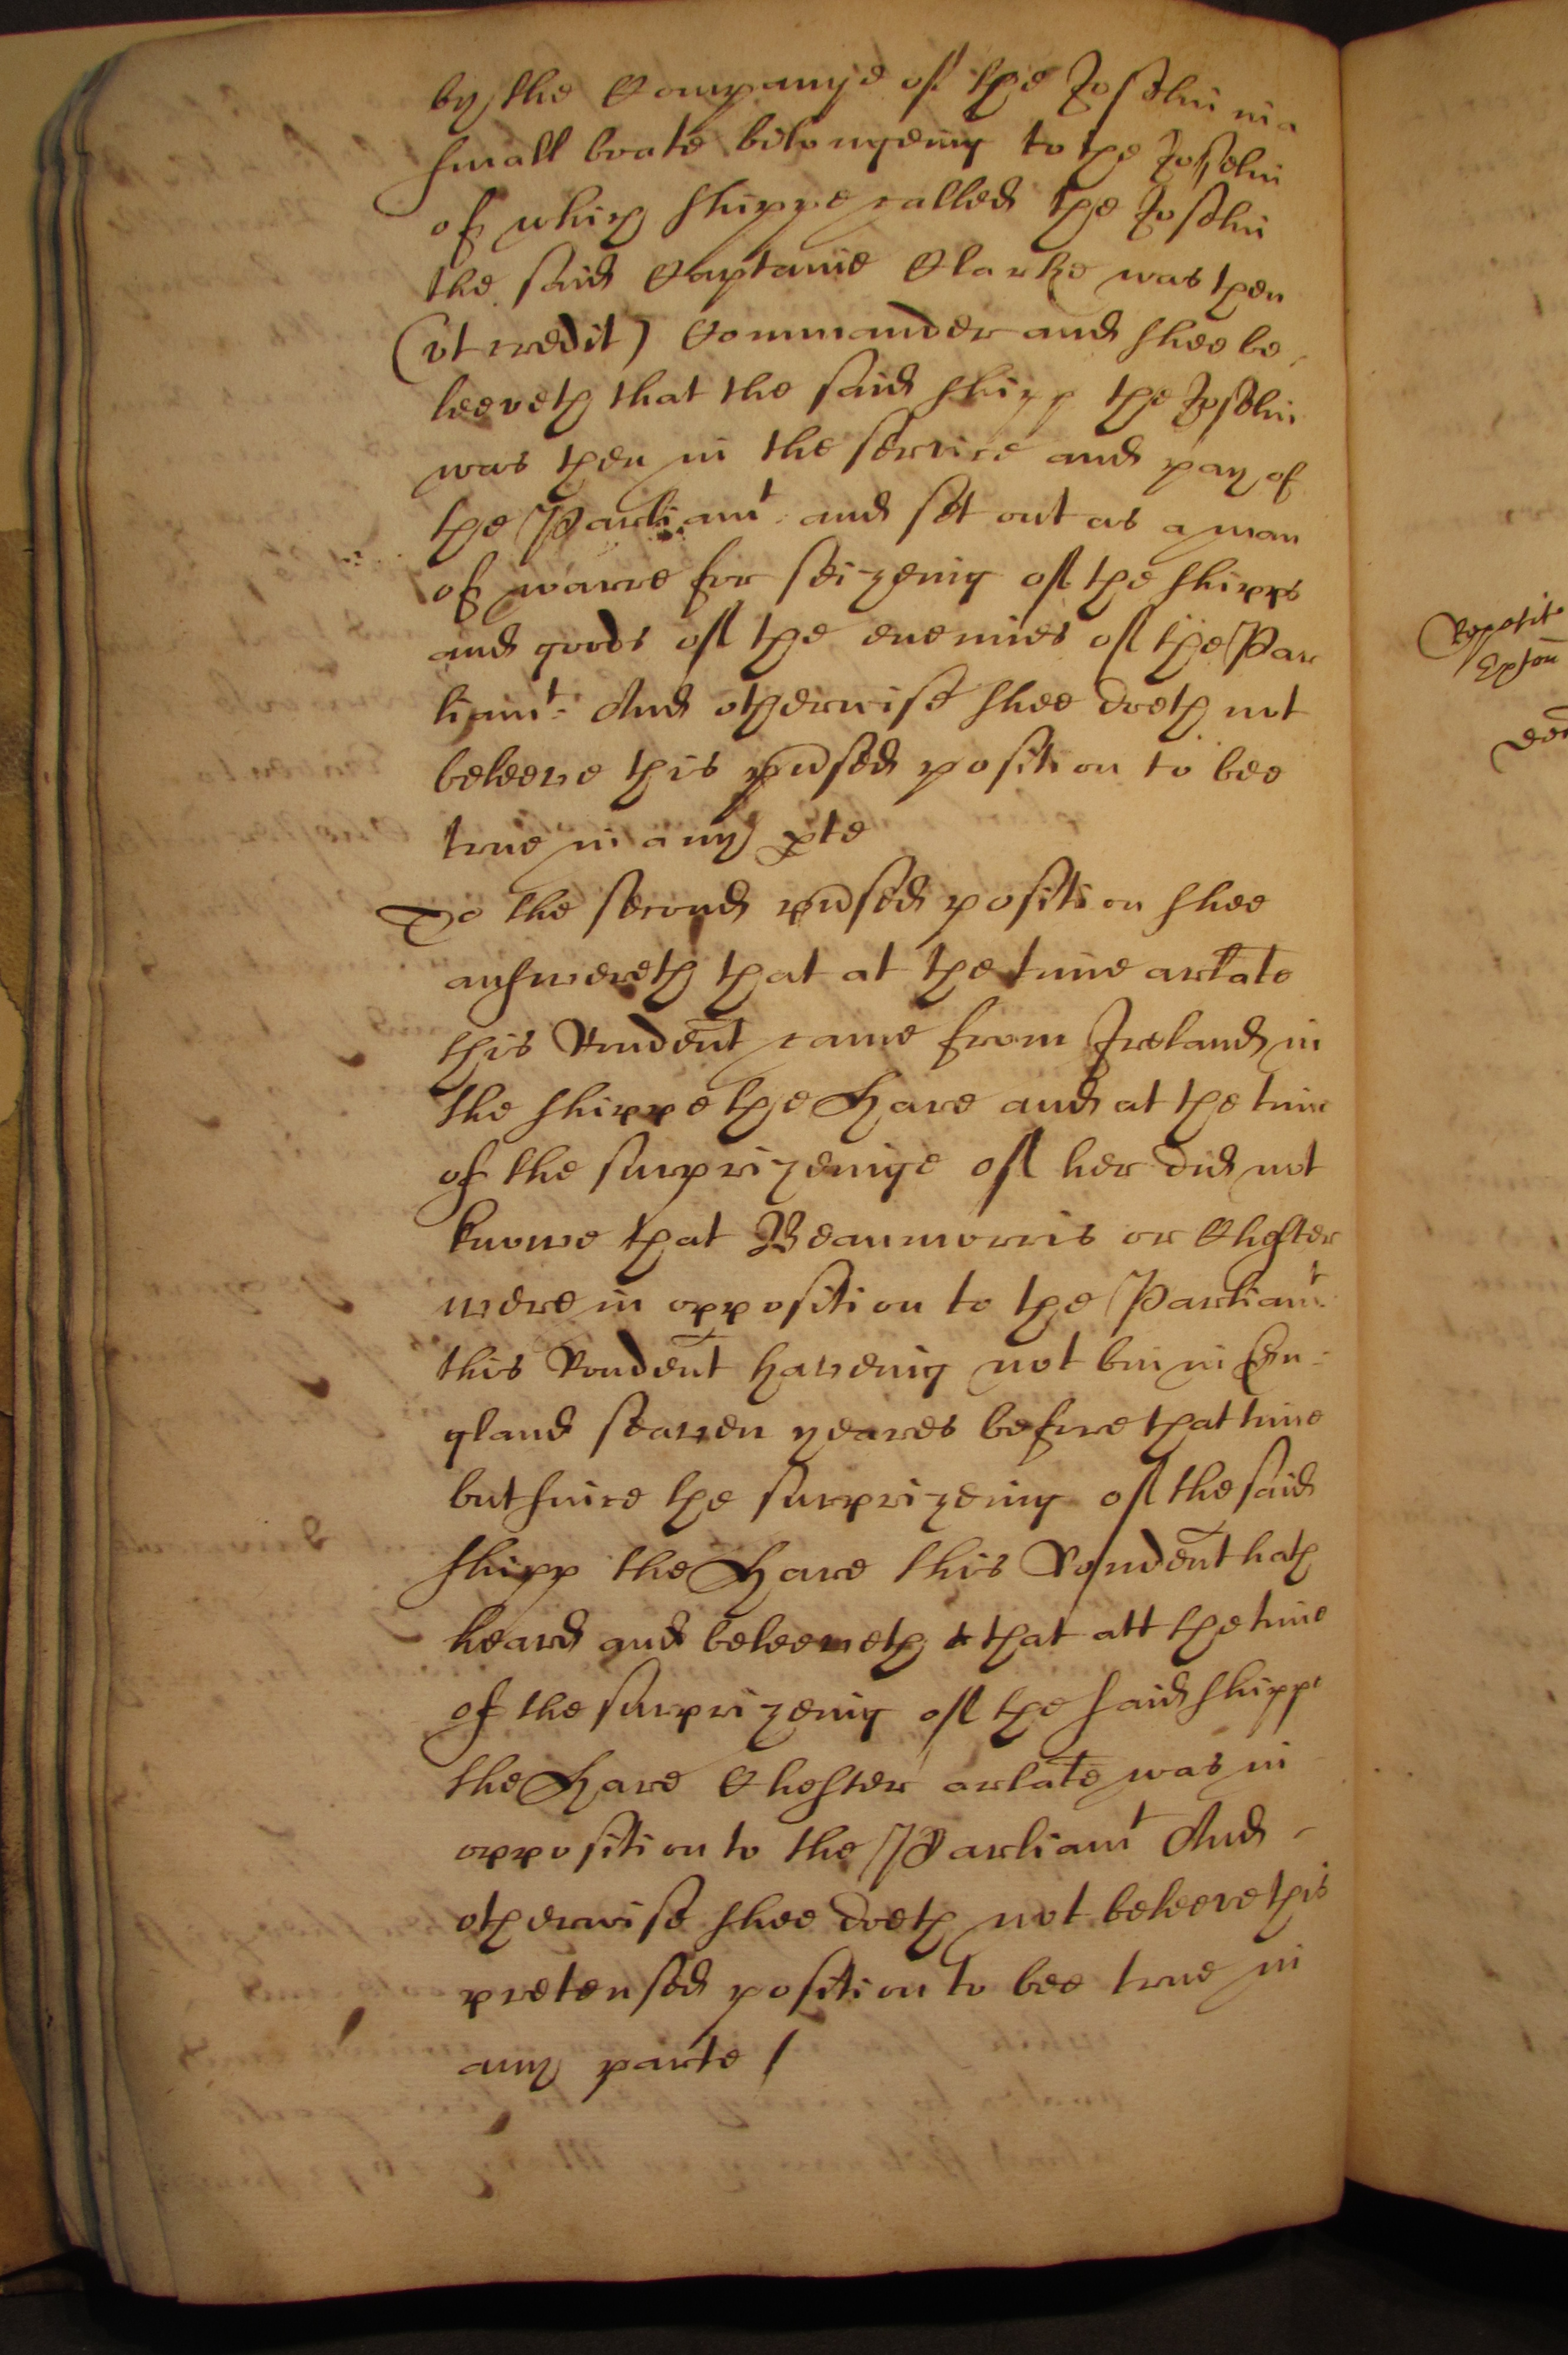 by the Companye of the Joselin in a
small boate bilongeing to the Joselin
of which shippe called the Joselin
the said Captaine Clarke was then
(ut credit) Commander and shee be
leeveth that the said shipp the Joselin
was then in the service and pay of
the Parliamt and set out as a man
of warre for seizeing of the shipps
and goods of the enemies of the Par
liamt. And otherwise shee doeth not
beleeve this prnsed position to bee
true in any pte
To the second prnsed position shee
answereth that at the time arlate
this Rondent came from Ireland in
the shippe the Hare and at the time
of the surprizeinge of her did not
knowe that Beaumorris or Chester
were in opposition to the Parliamt
this Rondent haveing not bin in En=
gland seaven yeares before that time
but since the surprizeing of the said
shipp the Hare this Rondent hath
heard and beleeveth that att the time
of the surprizeing of the said shippe
the Hare Chester arlate was in
opposition to the Parliamt And
otherwise shee doeth not beleeve this
pretensed position to bee true in
any parte /